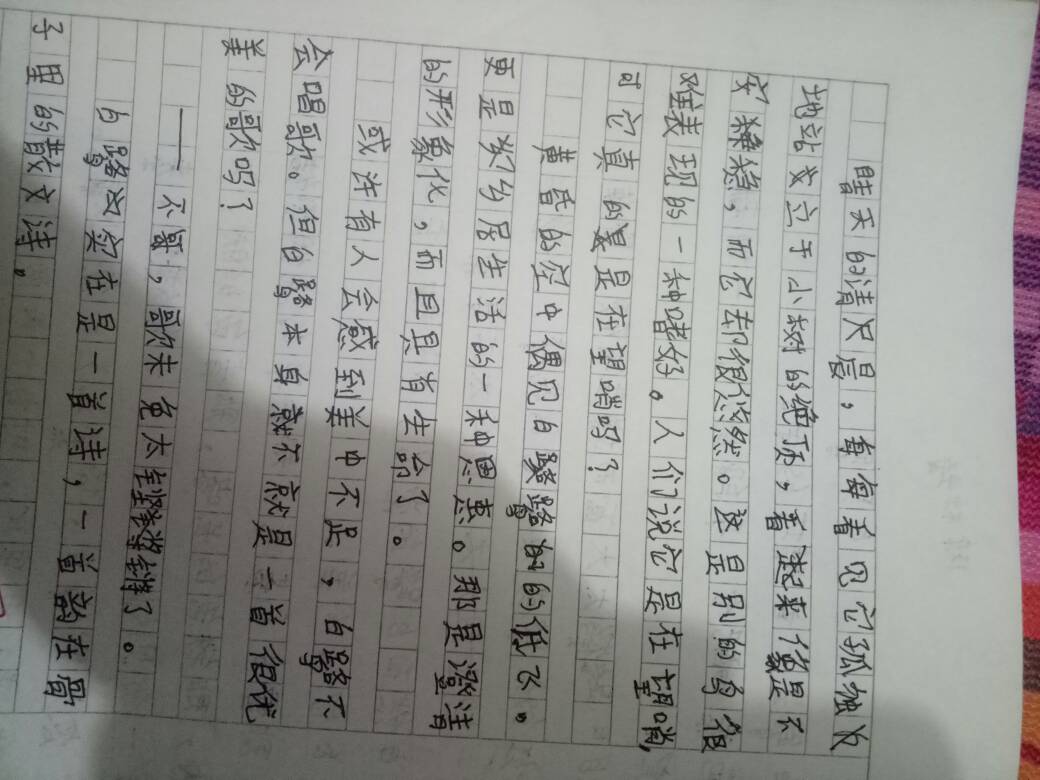 晴天的清晨，每每看见它孤独
地站立于小树的绝顶，看起来像是不
安稳，而它却很悠然。这是别的鸟很
难表现的一种嗜好。人们说它是在望哨，
可它真的是在望哨吗？
黄昏的空中偶见白鹭的低飞。
更是乡居生活的一种恩惠。那是澄清
的形象化，而且具有生命了。
或许有人会感到美中不足，白鹭不
会唱歌。但白鹭本身就不就是一首很优
美的歌吗？
——不哥，歌未免太铿锵了。
白鹭实在是一首诗，一首韵在骨
子里的散文诗。